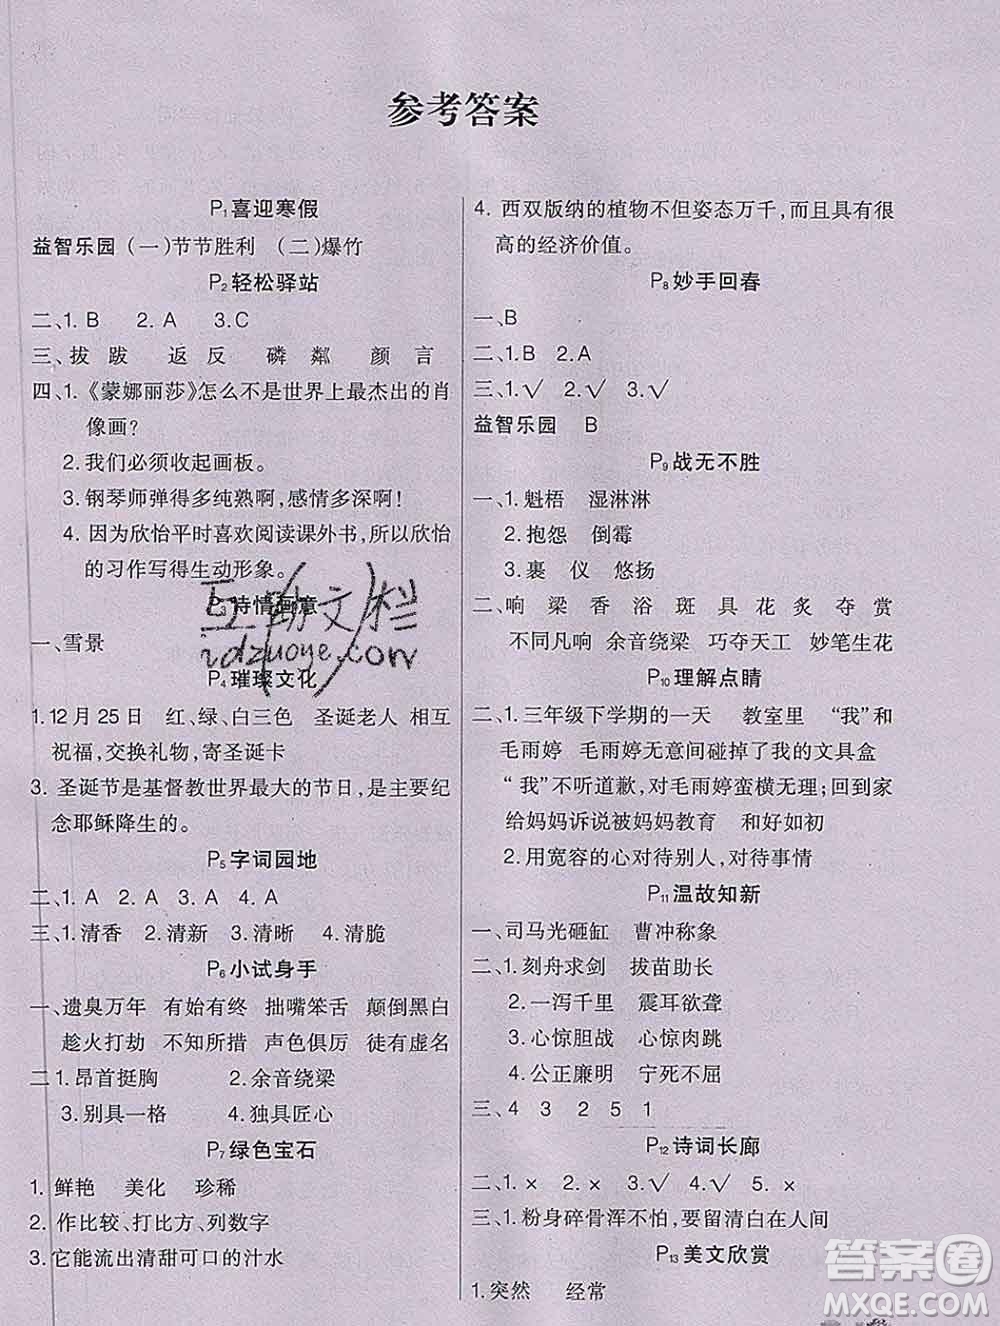 参考答案
P1喜迎寒假
益智乐园 (一)节节胜利 (二)爆竹
P2轻松驿站
二、1. B 2. A 3.C
三、拔 跋 返 反 磷 粼 颜 言
四、1.《蒙娜丽莎》怎么不是世界上最杰出的肖
像画？
2.我们必须收起画板。
3. 钢琴师弹得多纯熟啊,感情多深啊！
4. 因为欣怡平时喜欢阅读课外书,所以欣怡
的习作写得生动形象。
P3诗情画意
一、雪景
P4璀璨文化
1.12月25日 红、绿、白三色 圣诞老人 相互
祝福,交换礼物,寄圣诞卡
3. 圣诞节是基督教世界最大的节日,是主要纪
念耶稣降生的。
P5字词园地
二、1. A 2. A 3. A 4. A
三、1.清香 2.清新 3.清晰 4.清脆
P6小试身手
一、遗臭万年 有始有终 拙嘴笨舌 颠倒黑白
趁火打劫 不知所措 声色俱厉 徒有虚名
二1. 昂首挺胸 2. 余音绕梁
3.别具一格 4.独具匠心
P7绿色宝石
1. 鲜艳 美化 珍稀
2. 作比较、打比方、列数字
3.它能流出清甜可口的汁水
4. 西双版纳的植物不但姿态万千,而且具有很
高的经济价值。
P8妙手回春
一、B
二、1.B 2.A
三、1.√ 2.√ 3.√
益智乐园 B
P9战无不胜
一、1.魁梧 湿淋淋
2.抱怨 倒霉
3.裹 仪 悠扬
二、响 梁 香 浴 斑 具 花 炙 夺 赏
不同凡响 余音绕梁 巧夺天工 妙笔生花
P10理解点睛
二、1.三年级下学期的一天 教室里 “我”和
毛雨婷 毛雨婷无意间碰掉了我的文具盒
“我”不听道歉,对毛雨婷蛮横无理;回到家
给妈妈诉说被妈妈教育 和好如初
2. 用宽容的心对待别人,对待事情
P11温故知新
一、司马光砸缸 曹冲称象
二、1.刻舟求剑 拔苗助长
2.一泻千里 震耳欲聋
3.心惊胆战 心惊肉跳
4.公正廉明 宁死不屈
三、4 3 2 5 1
P12诗词长廊
二、1.× 2.× 3.√ 4.√ 5.×
三、1.粉身碎骨浑不怕,要留清白在人间
P13美文欣赏
1.突然 经常
互助文栏
idzuoye.com
答案圈
MXQE.COM